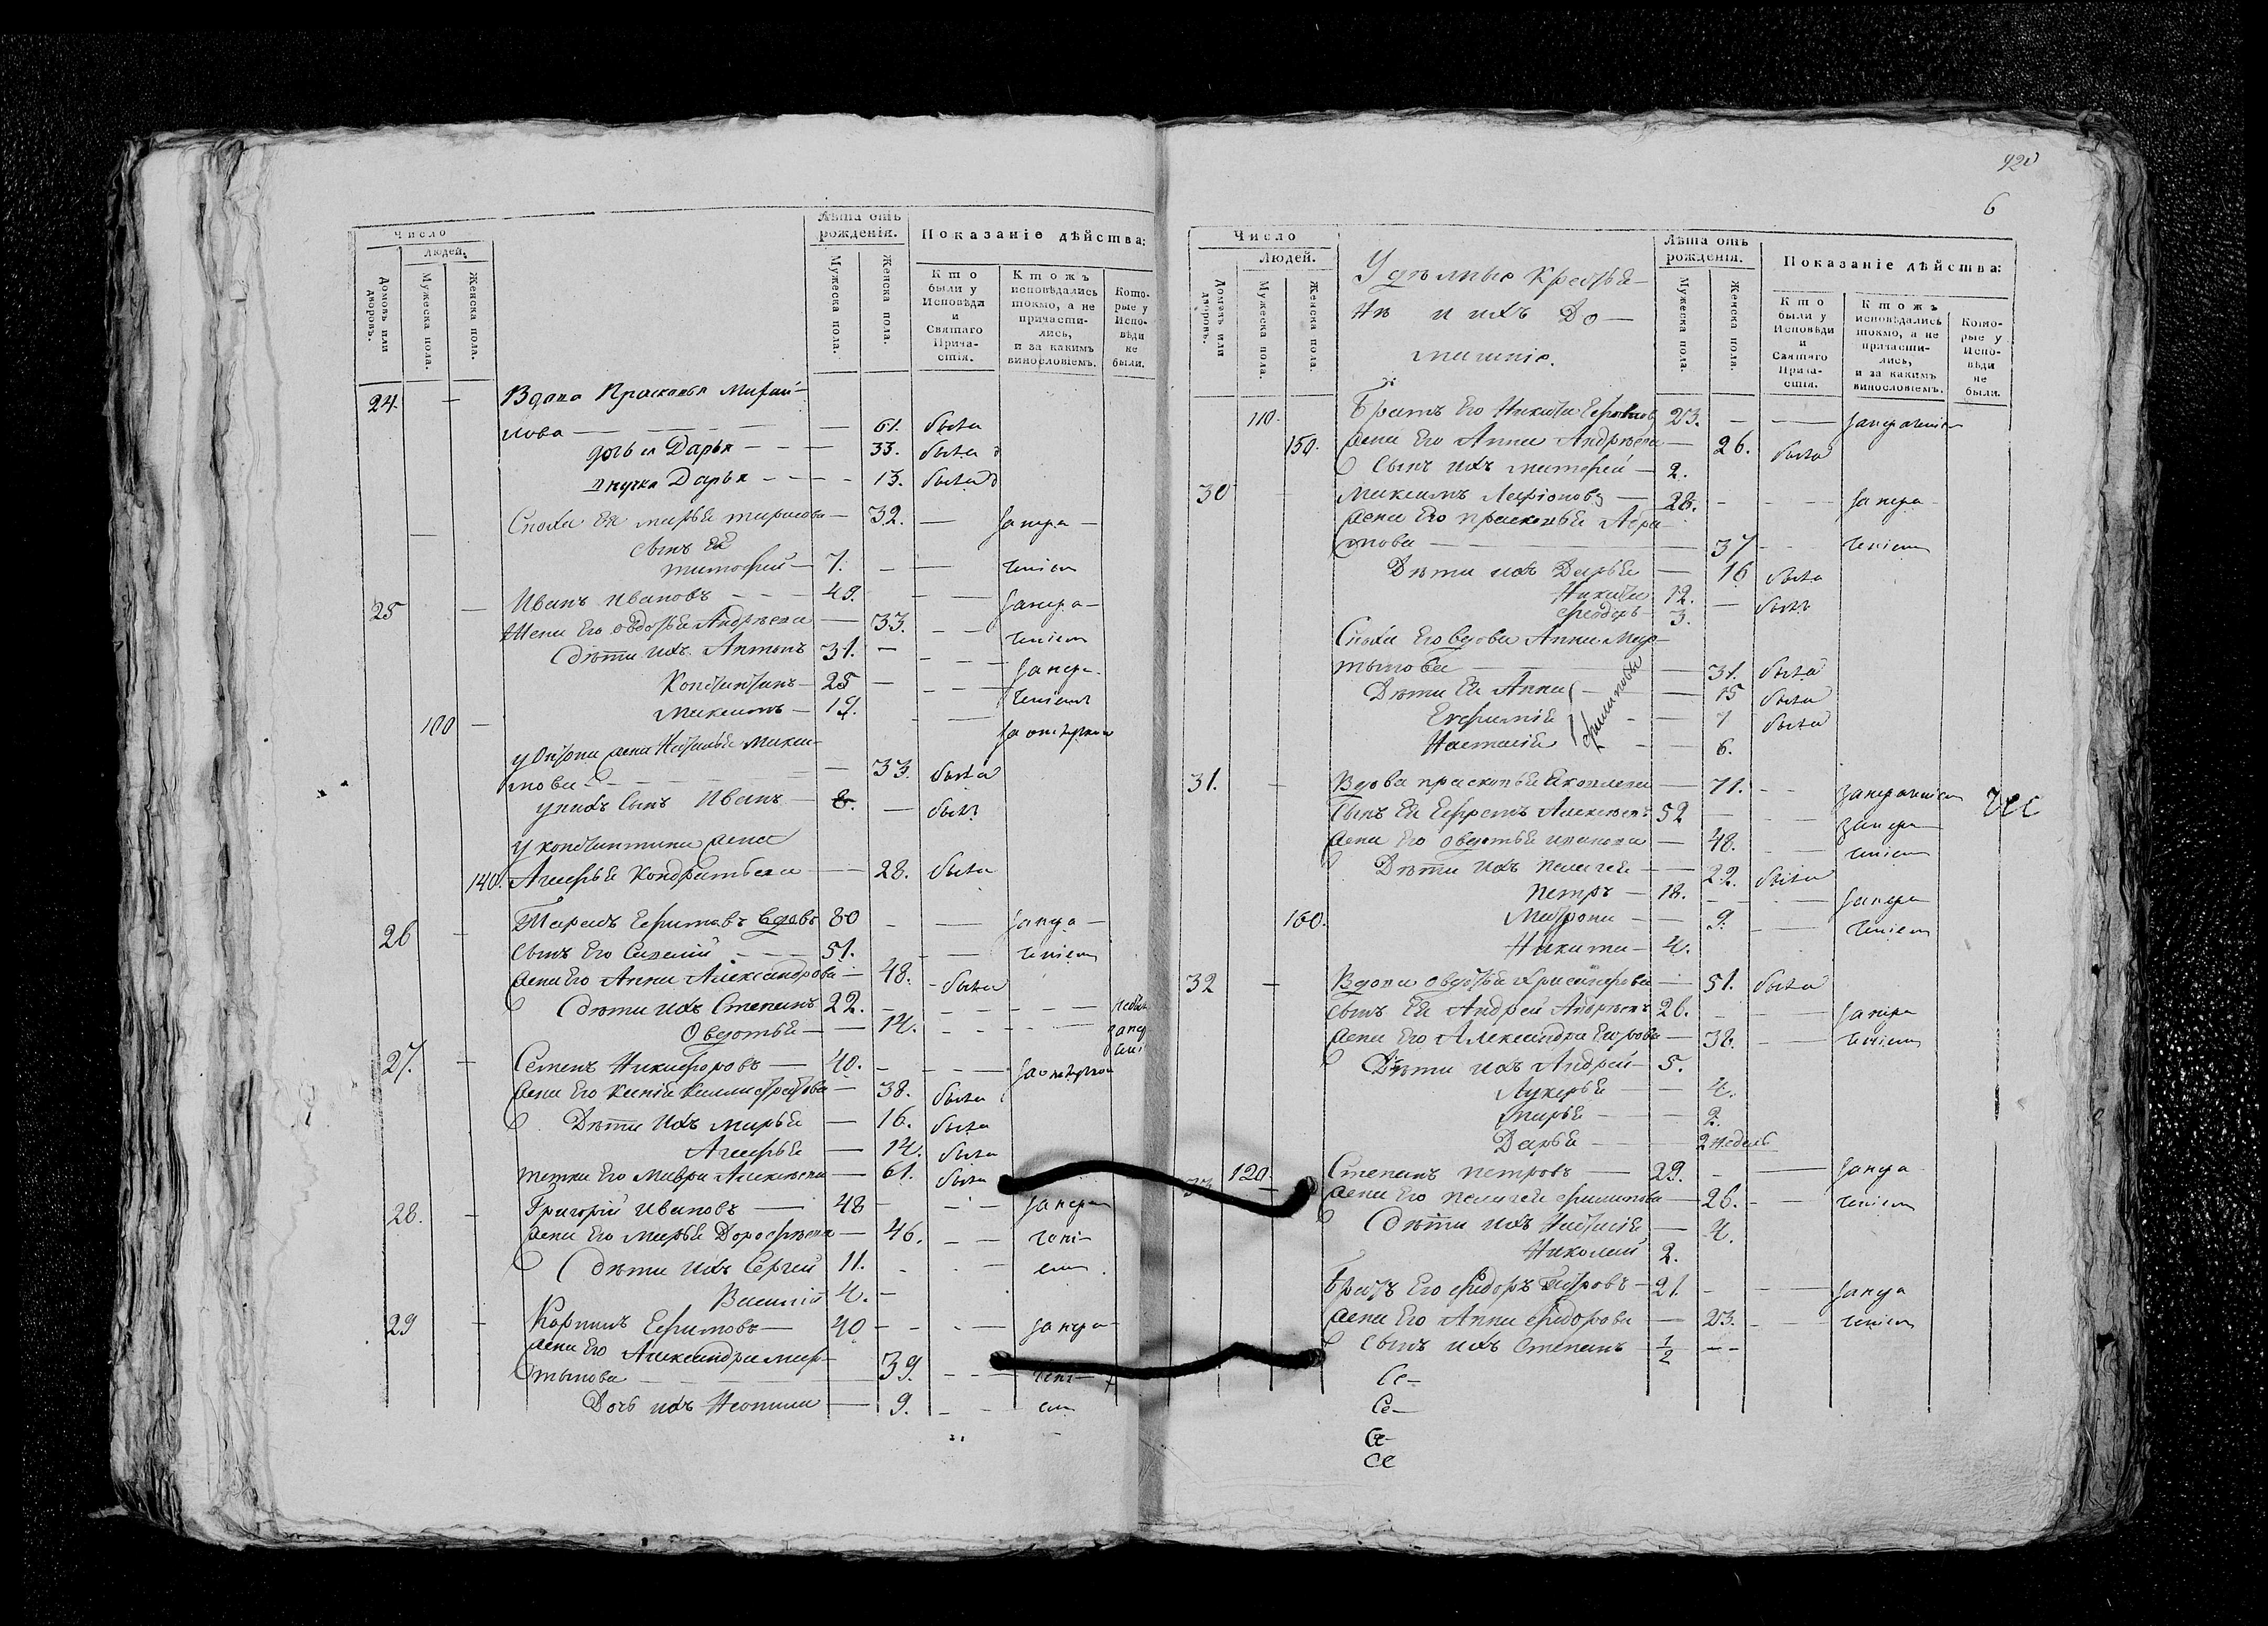 Число
Людей.
Домовъ или дворовъ.
Мужеска пола.
Женска пола.
Лѣта отъ рожденія.
Мужеска пола.
Женска пола.
Показаніе дѣйства:
Кто были у Исповѣди и Святаго Прича- стія.
Ктожъ исповѣдались токмо, а не причасти- лись, и за какимъ винословіемъ.
Кото- рые у Испо- вѣди не были.
24. Вдова Прасковья Михай-
лова 61. была
дочь ея Дарья 33. была
внучка Дарья 13. была
Сноха Ея Марья 32. — за нера-
сынъ Ея
Тимофей 7. — — ченіем
25 Иванъ Ивановъ 49. — за нера-
Жена Его Овдотья Андрѣева 33. — ченіем
Дѣти ихъ Антонъ 31. — за нера-
Константинъ 25 — ченіем
Максимъ 19.
100
у Антона жена Наталья Макси-
мова 33. была
у нихъ сынъ Иванъ 8. — былъ
у Константина жена
140. Агафья Кондратьева 28. была
26 Тарасъ Ефимовъ вдовъ 80 — за нера-
сынъ Его Савелій 51. — ченіем
жена Его Анна Александрова 48. была
Дѣти ихъ Степанъ 22.
Овдотья 14.
27. Семенъ Никифоровъ 40. —
жена Его Ксенія 38. была
Дѣти ихъ Марья 16. была
Агафья 14. была
тетка Его Мавра Алексѣева 61. была
28. Григорій Ивановъ 48 — за нера
жена Его Марья Дорофѣева 46. — чені-
Дѣти ихъ Сергей 11. — ем
Василій 4. —
29 Ефимовъ 40 — за нера-
жена Его Александра Мар-
тынова 39. — чені-
Дочь ихъ 9. — ем
920
6
Число
Людей.
Домовъ или дворовъ.
Мужеска пола.
Женска пола.
Удѣльные крестья-
не и ихъ до-
машніе.
Лѣта отъ рожденія.
Мужеска пола.
Женска пола.
Показаніе дѣйства:
Кто были у Исповѣди и Святаго Прича- стія.
Ктожъ исповѣдались токмо, а не причасти- лись, и за какимъ винословіемъ.
Кото- рые у Испо- вѣди не были.
110. Братъ Его Никита Ефимовъ 23. — — за нераченіем
150. жена Его Анна Андрѣева 26. была
сынъ ихъ Матвей 2.
30 Максимъ Ларіоновъ 28. — за нера-
жена Его Прасковья Абра-
мова 37 — ченіем
Дѣти ихъ Дарья 16 была
Никита 12. — былъ
Федоръ 3.
Сноха Его вдова Анна Мар-
тынова 31. была
Дѣти Ея Анна 15 была
Евфимія 7 была
Настасія 6.
Филиповы
31. Вдова Прасковья Яковлева 71. — за нераченіем
Сынъ Ея Ефремъ Алексѣевъ 52 — за нера
жена Его Овдотья Иванова 48. — ченіем
Дѣти ихъ Пелагея 22. была
Петръ 18. — за нера
160. Матрона 9. — ченіем
Никита 4.
32 Вдова Овдотья 51. была
сынъ Ея Андрей Андрѣевъ 26. — за нера
жена Его Александра Егорова 38. — ченіем
Дѣти ихъ Андрей 5.
Лукерья 4.
Марья 2.
Дарья 2 недель
33 120. Степанъ Петровъ 29. — за нера
жена Его Пелагея Филипова 26. — ченіем
Дѣти ихъ Настасія 4.
Николай 2.
Братъ Его Федоръ Петровъ 21. — за нера
жена Его Анна Федорова 23. — ченіем
сынъ ихъ Степанъ 1/2
Се-
Се-
Се-
Се